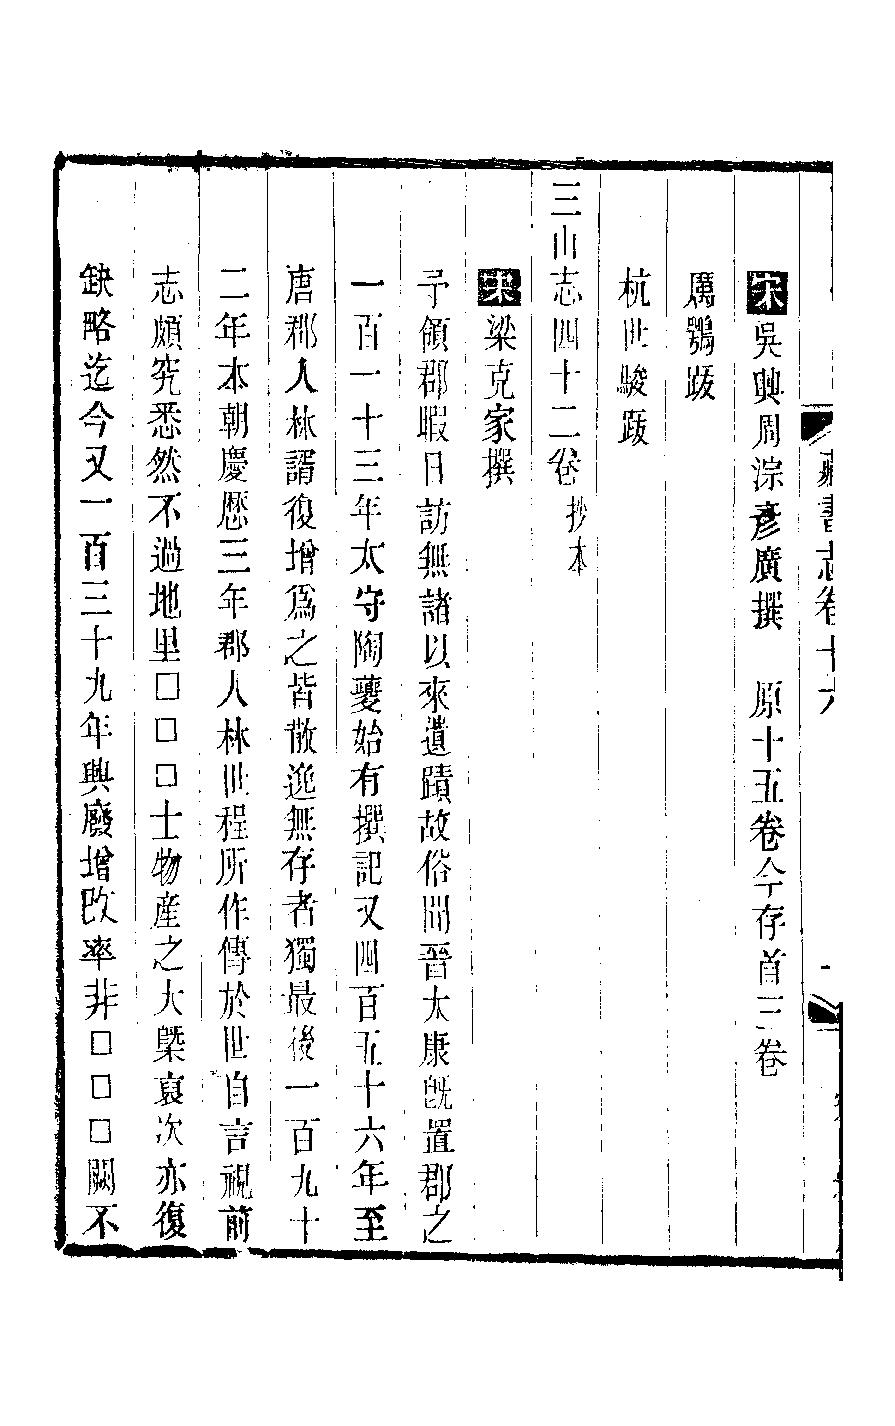 藏書志卷十六
一
宋吳興周淙彥廣撰　原十五卷今存首三卷
厲鶚跋
杭世駿跋
三山志四十二卷抄本
宋梁克家撰
予領郡暇日訪無諸以來遺蹟故俗聞晉太康旣置郡之
一百一十三年太守陶夔始有撰記又四百五十六年至
唐郡人林諝復增爲之皆散逸無存者獨最後一百九十
二年本朝慶歷三年郡人林世程所作傳於世自言視前
志頗究悉然不過地里□□□士物產之大槩裒次亦復
缺略迄今又一百三十九年興廢增改率非□□□闕不